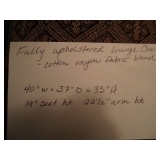 Fully upholstered lounge
cotton rayon fabric blend
40" W x 37" D x 33" H
19" seat ht 22 1/2" arm ht